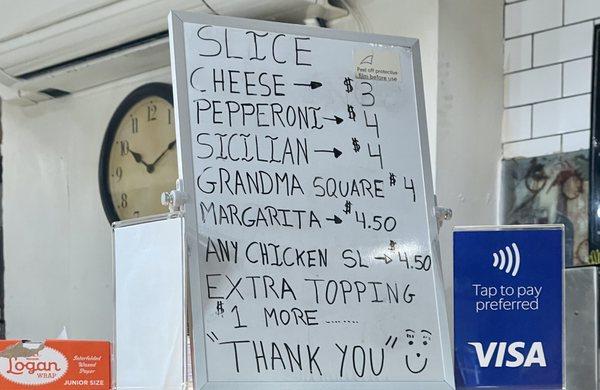 SLICE
Peel off protective
film before use
CHEESE → $3
PEPPERONI → $4
SICILIAN → $4
GRANDMA SQUARE $4
MARGARITA → $4.50
ANY CHICKEN SL → $4.50
EXTRA TOPPING
$1 MORE ........
"THANK YOU"
Tap to pay
preferred
VISA
Logan
WRAP
JUNIOR SIZE
Interfolded
Waxed
Paper